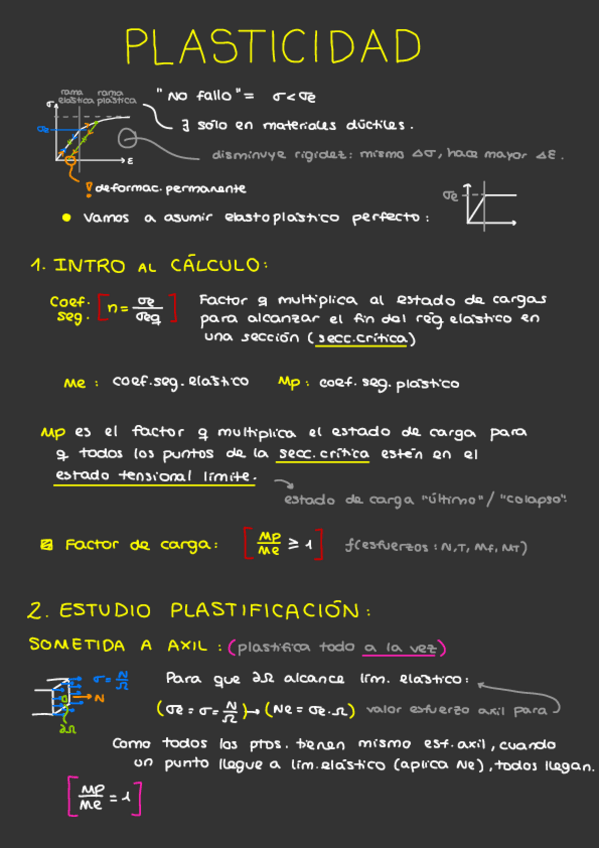 PLASTICIDAD
rama elástica rama plástica
σ
σe
ε
"No fallo" = σ<σe
∃ sólo en materiales dúctiles.
disminuye rigidez: mismo Δσ, hace mayor Δε.
! deformac. permanente
• Vamos a asumir elastoplástico perfecto:
σe
1. INTRO AL CÁLCULO:
Coef. seg. [n = σe/σeq]
Factor q multiplica al estado de cargas
para alcanzar el fin del rég elástico en
una sección (secc.crítica)
Me: coef.seg.elástico Mp: coef.seg.plástico
Mp es el factor q multiplica el estado de carga para
q todos los puntos de la secc.crítica estén en el
estado tensional límite.
estado de carga "último"/"colapso".
Factor de carga: [Mp/Me ≥ 1] f(esfuerzos: N,T,Mf,MT)
2. ESTUDIO PLASTIFICACIÓN:
SOMETIDA A AXIL: (plastifica todo a la vez)
σ = N/Ω
N
G
∂Ω
Para que ∂Ω alcance lím. elástico:
(σe = σ = N/Ω) → (Ne = σe·Ω) valor esfuerzo axil para
Como todos los ptos. tienen mismo esf.axil, cuando
un punto llegue a lím.elástico (aplica Ne), todos llegan.
[Mp/Me = 1]